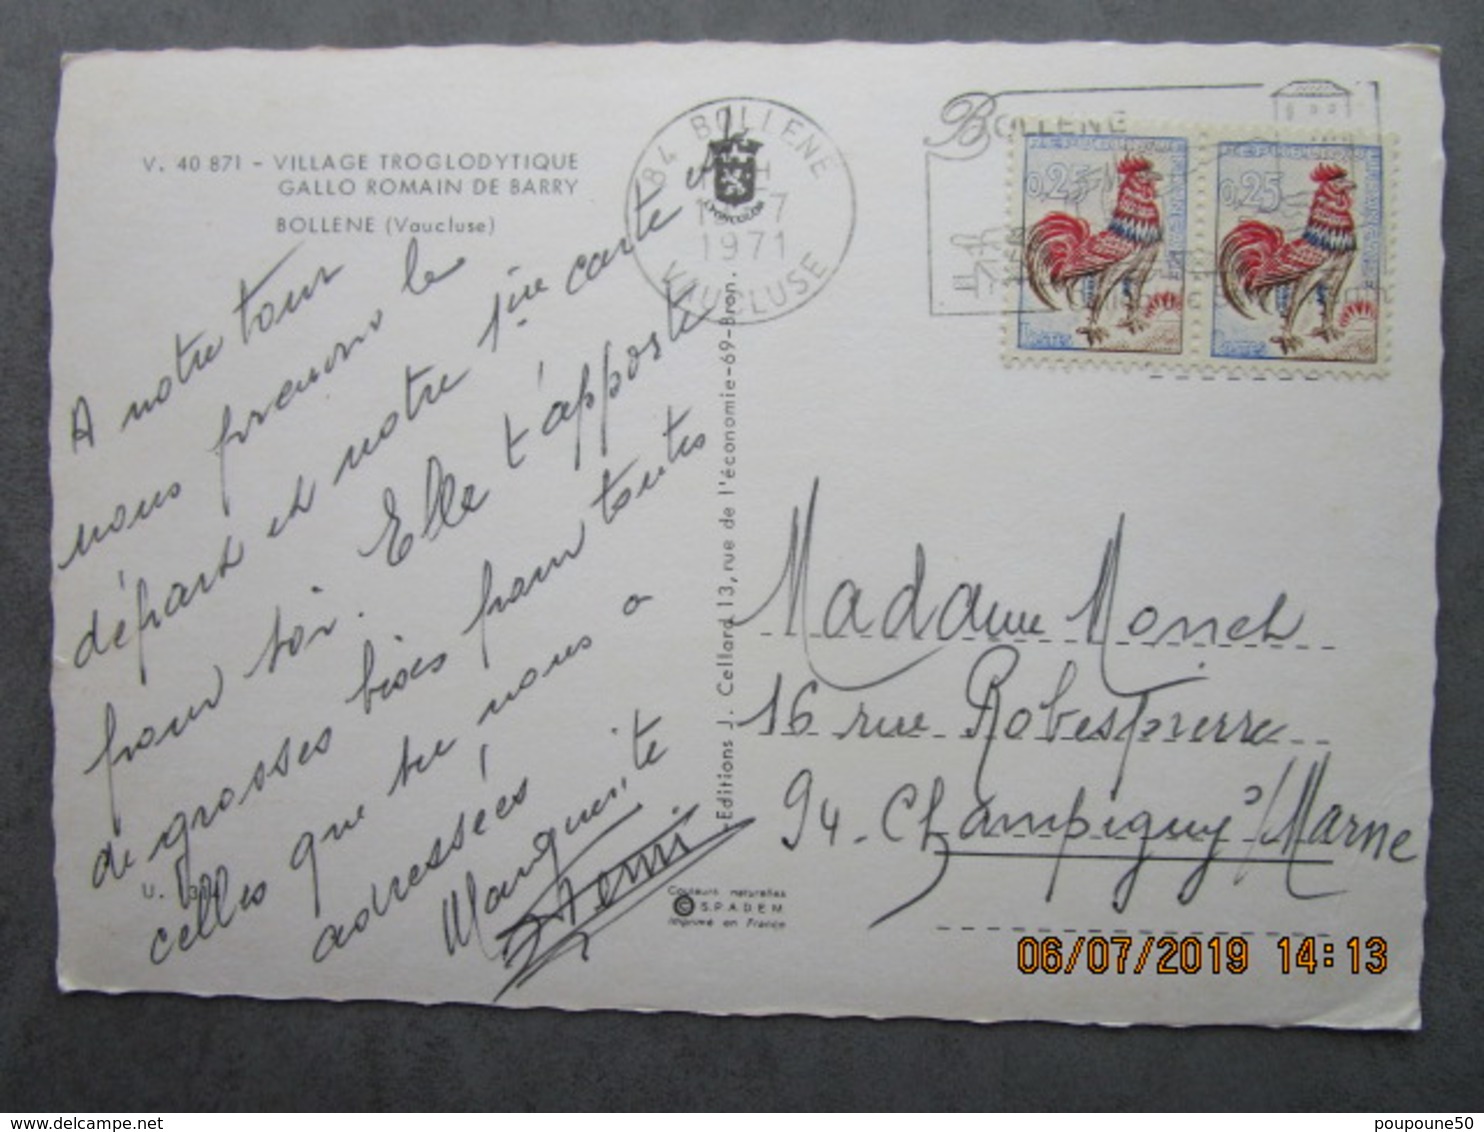 V. 40 871 - VILLAGE TROGLODYTIQUE
GALLO ROMAIN DE BARRY
BOLLENE (Vaucluse)
A notre tour
nous prenons le
départ et notre 1ière carte est
pour toi. Elle t'apporte
de grosses bises pour toutes
celles que tu nous a
adressées
Marguerite
Henri
U.
84 BOLLENE
7
1971
VAUCLUSE
Editions J. Cellard, 13, rue de l'économie-69-Bron.
Couleurs naturelles
© S.P.A.D.E.M.
Imprimé en France
BOLLENE
REPUBLIQUE FRANÇAISE
0,25
Postes
REPUBLIQUE FRANÇAISE
0,25
Postes
Madame Monch
16 rue Robespierre
94 - Champigny s/Marne
06/07/2019 14:13
poupoune50